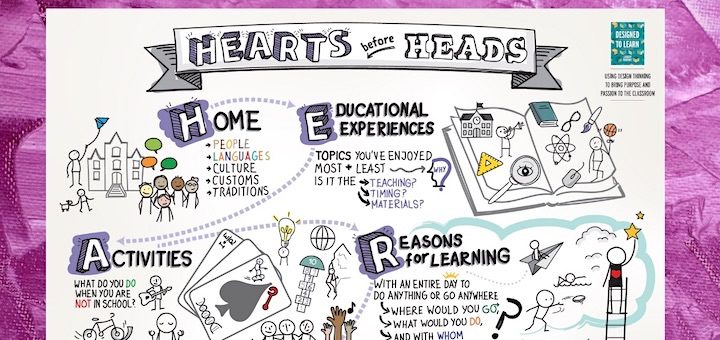 HEARTS before HEADS
DESIGNED
TO LEARN
USING DESIGN THINKING
TO BRING PURPOSE AND
PASSION TO THE CLASSROOM
HOME
→ PEOPLE
→ LANGUAGES
→ CULTURE
→ CUSTOMS
→ TRADITIONS
EDUCATIONAL
EXPERIENCES
TOPICS YOU'VE ENJOYED
MOST + LEAST → WHY?
IS IT THE → TEACHING?
→ TIMING?
→ MATERIALS?
ACTIVITIES
WHAT DO YOU DO
WHEN YOU ARE
NOT IN SCHOOL?
10
REASONS
for LEARNING
WITH AN ENTIRE DAY TO
DO ANYTHING OR GO ANYWHERE
→ WHERE WOULD YOU GO,
→ WHAT WOULD YOU DO,
→ AND WITH WHOM
?